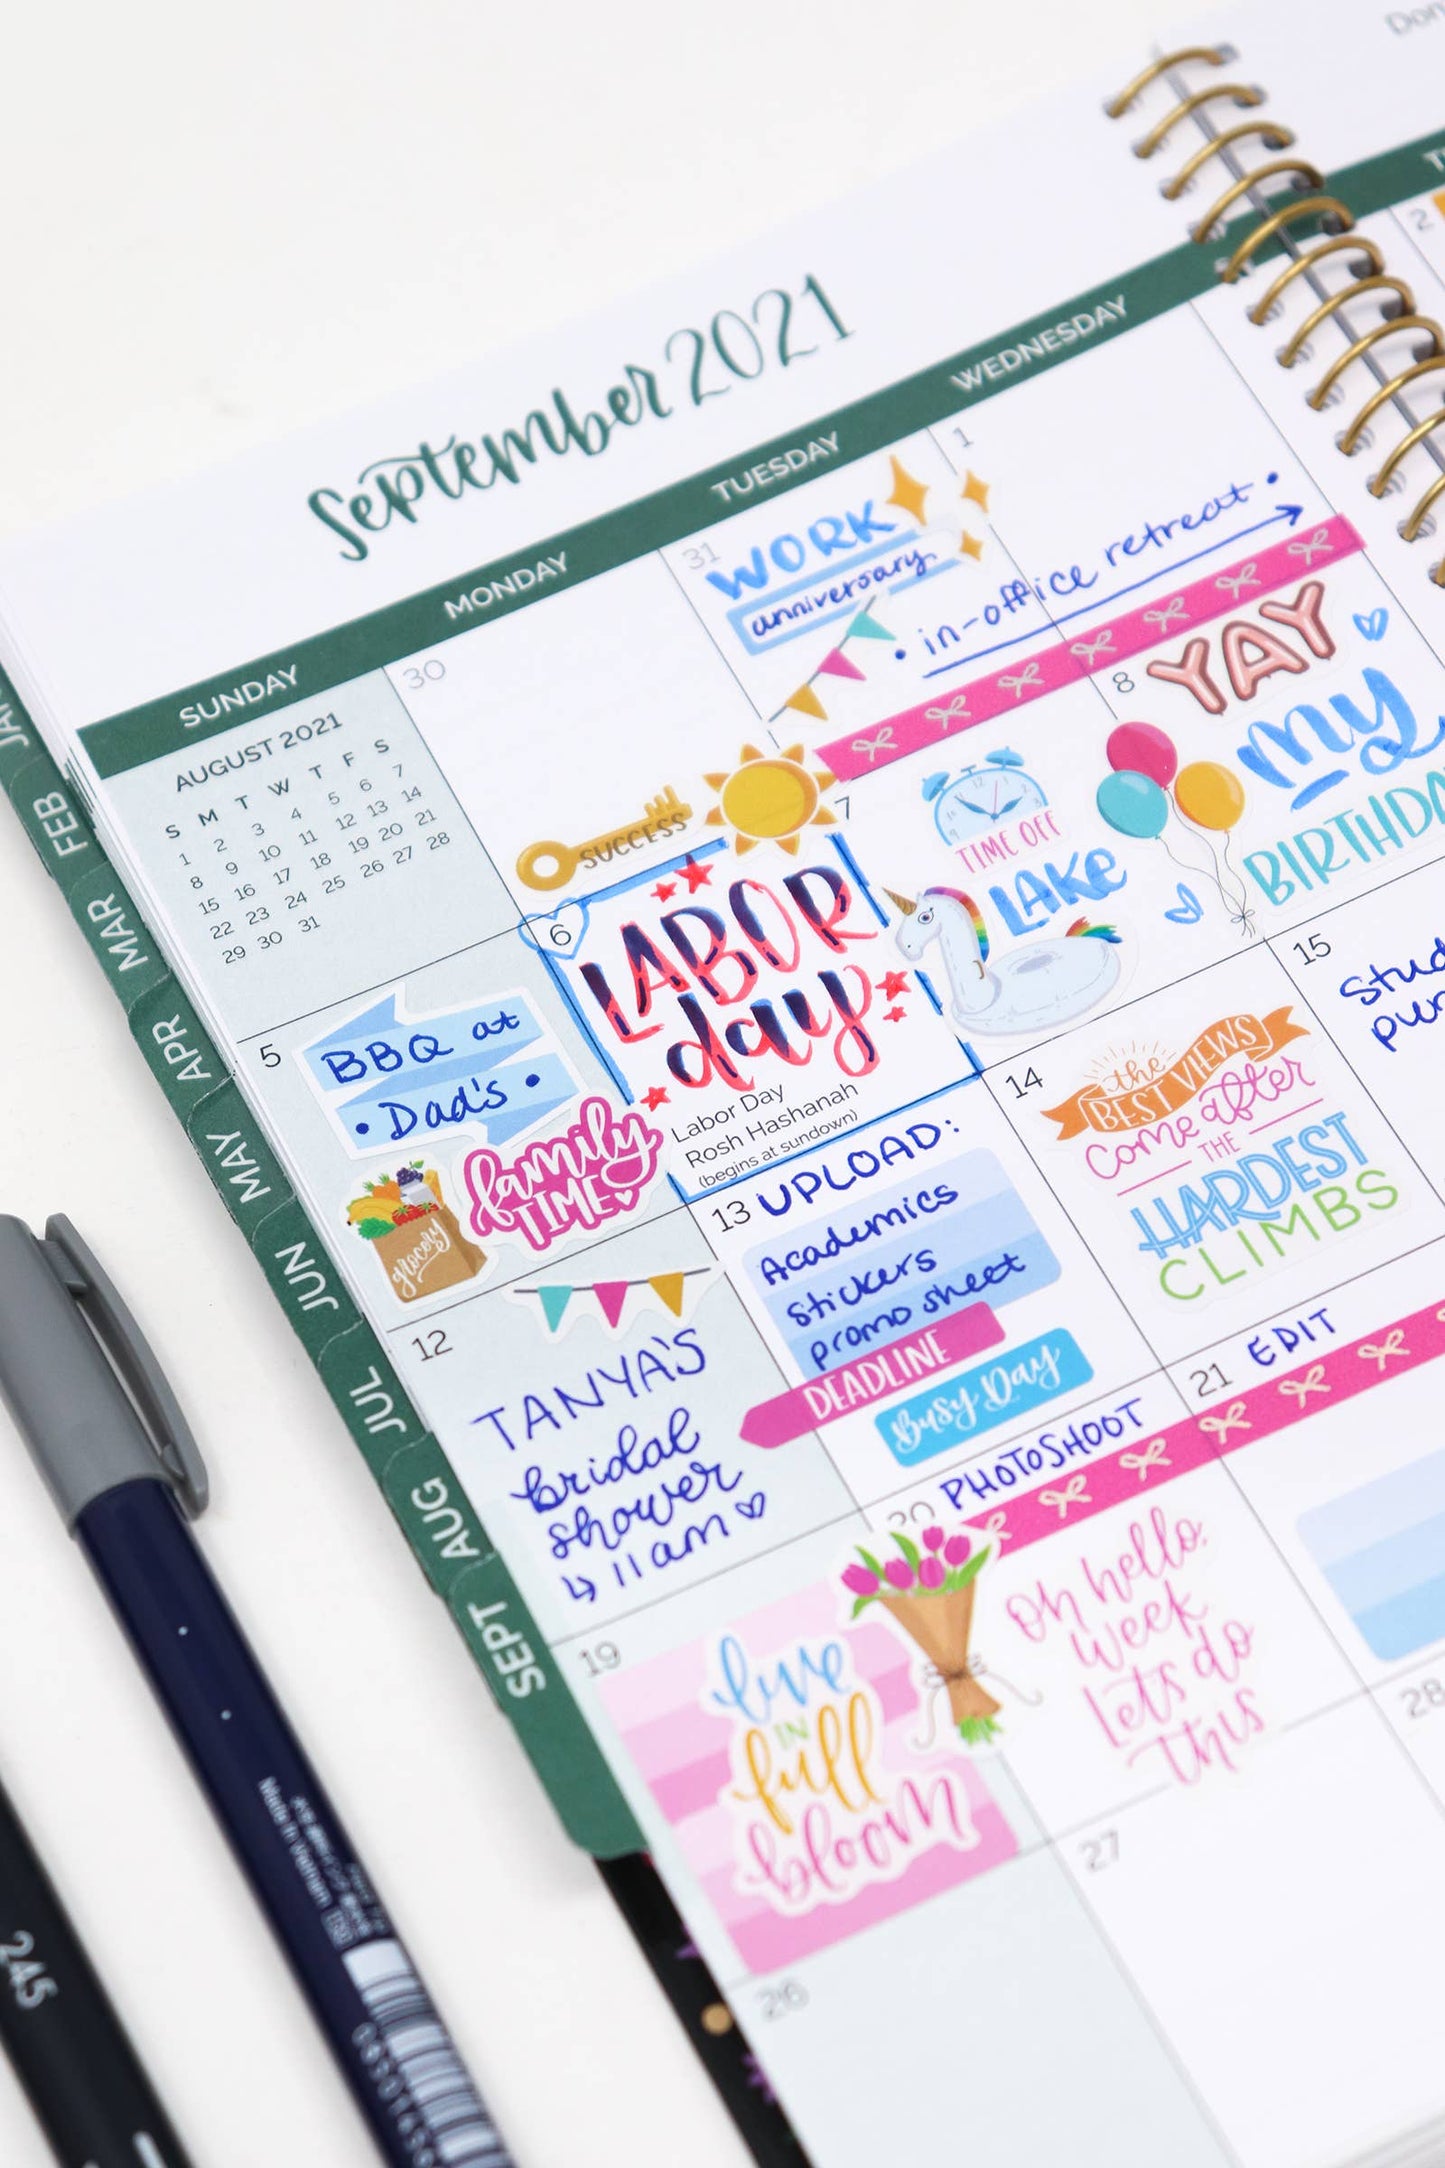 September 2021
SUNDAY
MONDAY
TUESDAY
WEDNESDAY
AUGUST 2021
S M T W T F S
1 2 3 4 5 6 7
8 9 10 11 12 13 14
15 16 17 18 19 20 21
22 23 24 25 26 27 28
29 30 31
30
31
WORK
anniversary
1
• in-office retreat •
2
SUCCESS
5
BBQ at
• Dad's •
family
TIME
grocery
6
LABOR
day
Labor Day
Rosh Hashanah
(begins at sundown)
7
TIME OFF
LAKE
8
YAY
My
12
TANYA'S
bridal
shower
↳ 11am ♡
13
UPLOAD:
Academics
stickers
promo sheet
DEADLINE
Busy Day
14
the
BEST VIEWS
come after
THE
HARDEST
CLIMBS
15
19
live
IN
full
bloom
20
PHOTOSHOOT
oh hello,
week
let's do
this
21
EDIT
26
27
28
FEB
MAR
APR
MAY
JUN
JUL
AUG
SEPT
245